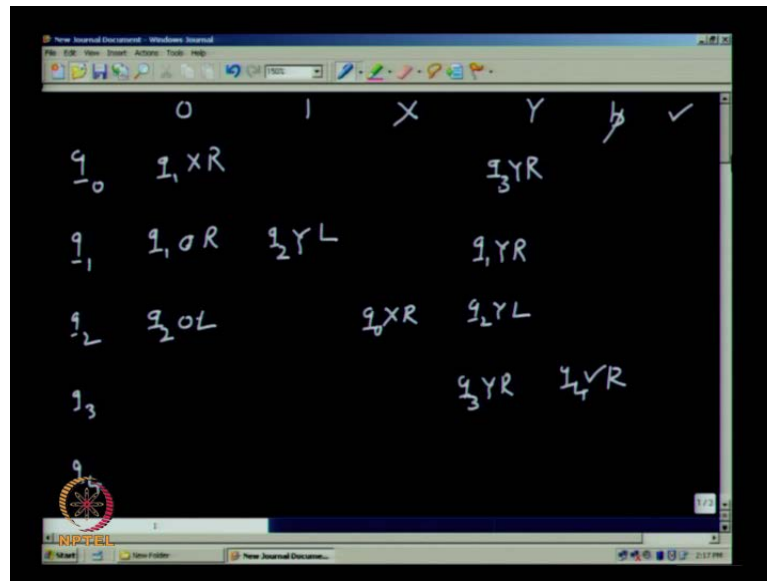 New Journal Document - Windows Journal
File Edit View Insert Actions Tools Help
150%
0 1 X Y b ✓
q0 q1 X R q3 Y R
q1 q1 0 R q2 Y L q1 Y R
q2 q2 0 L q0 X R q2 Y L
q3 q3 Y R q4 ✓ R
q4
NPTEL
1
1/3
Start New Folder New Journal Docume... 2:17 PM